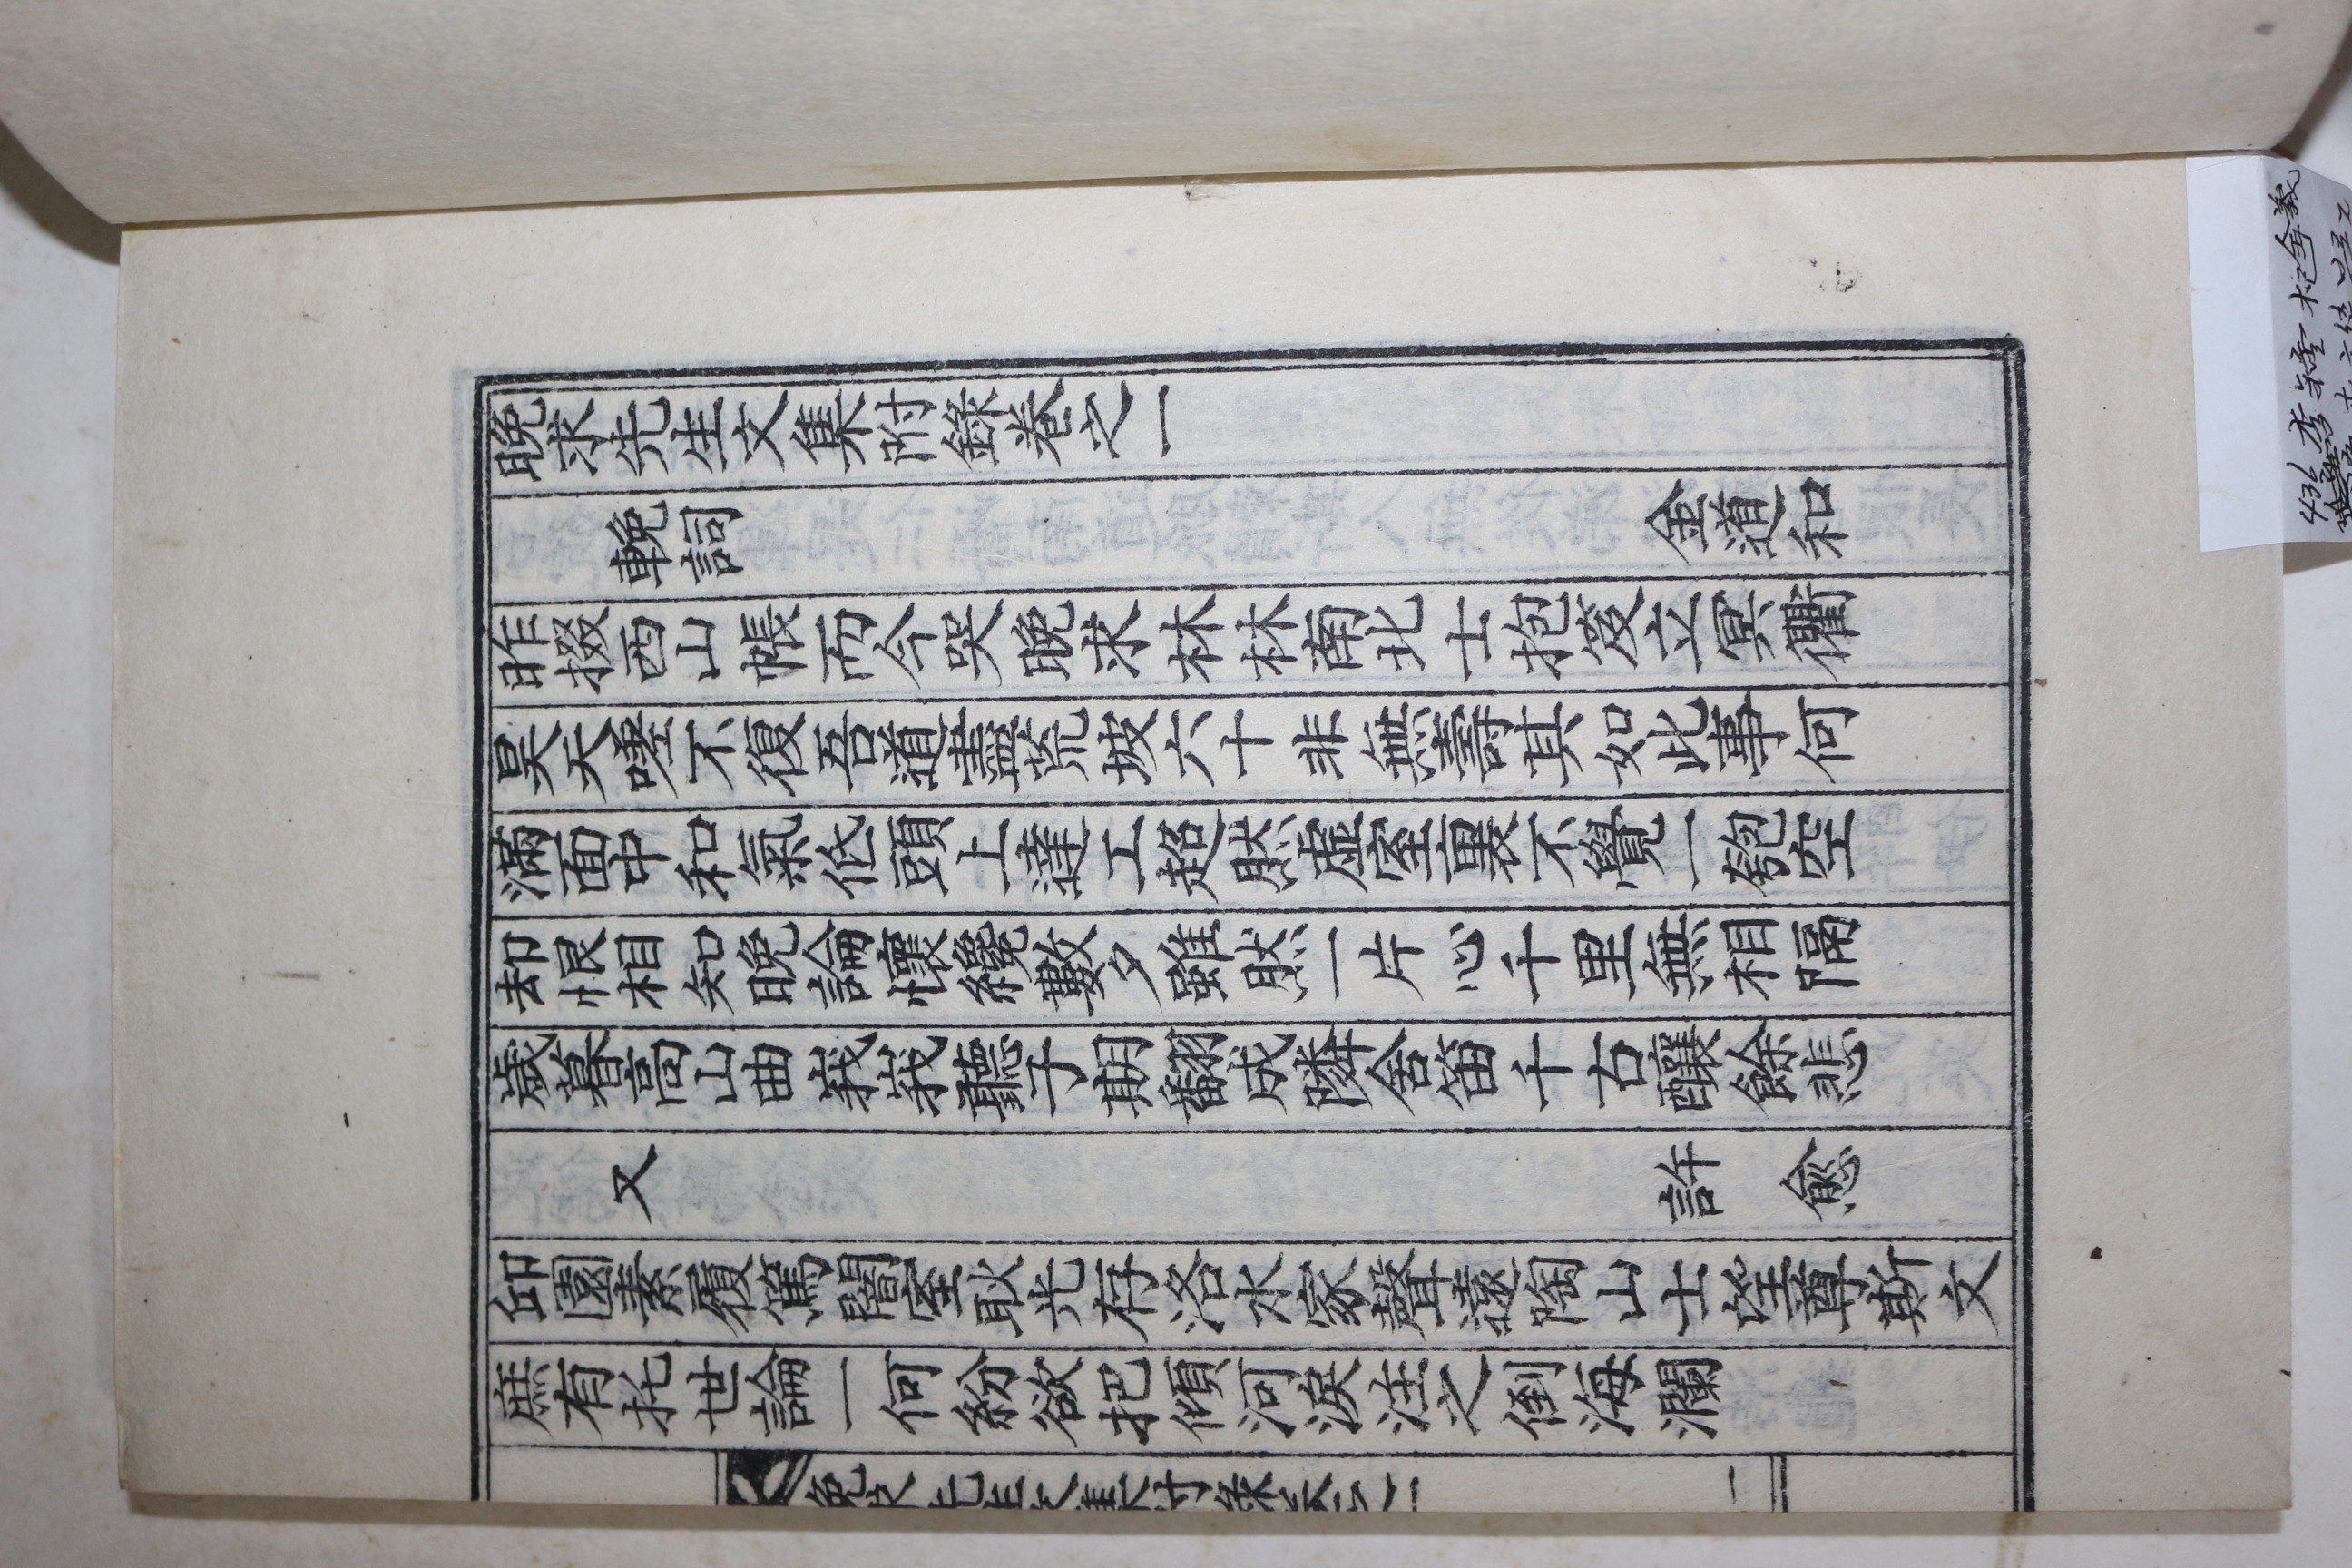 晚求先生文集附錄卷之一
輓詞
金道和
昨掇西山帳而今哭晚求林林南北士抱笈立冥衢
昊天嗟不復吾道盡荒坡六十非無壽其如此事何
滿面中和氣低頭上達工超然虛室裏不覺一匏空
却恨相知晚論懷纔數夕雖然一片心千里無相隔
歲暮高山曲峩峩聽子期翻成隣舍笛千古釀餘悲
又
許愈
邱園素履篤闇室耿光存洛水家聲遠陶山士望尊斯文
庶有托世論一何紛欲把傾河淚注之倒海瀾
晚求先生文集附錄卷之一
一
436 李